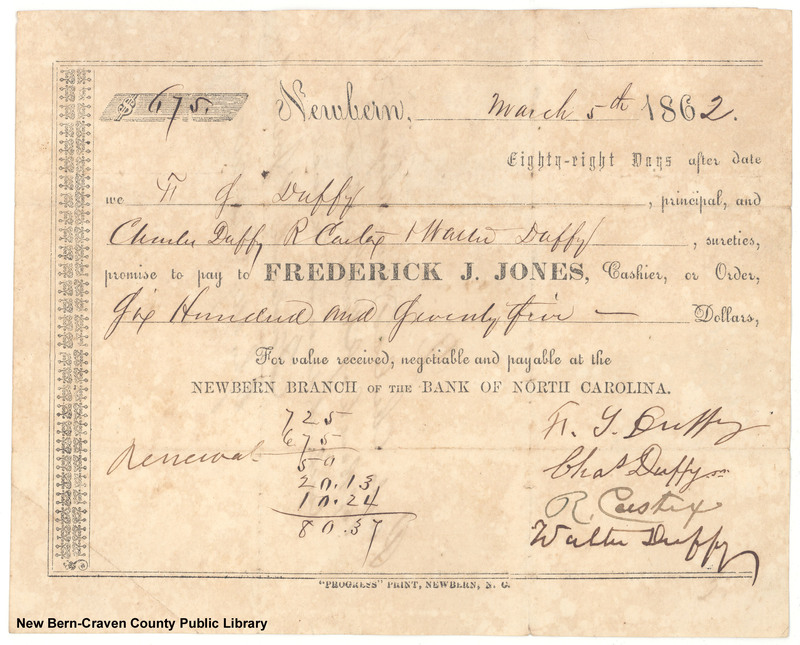 $ 675. Newbern, March 5th 1862.
Eighty-eight Days after date
we F J Duffy, principal, and
Charles Duffy R Custix & Walter Duffy, sureties,
promise to pay to FREDERICK J. JONES, Cashier, or Order,
Six Hundred and Seventy five — Dollars,
For value received, negotiable and payable at the
NEWBERN BRANCH OF THE BANK OF NORTH CAROLINA.
725
675
Renewal 50
20.13
10.24
80.37
Duffy
Chas Duffy
R. Custix
Walter Duffy
"PROGRESS" PRINT, NEWBERN, N. C.
New Bern-Craven County Public Library